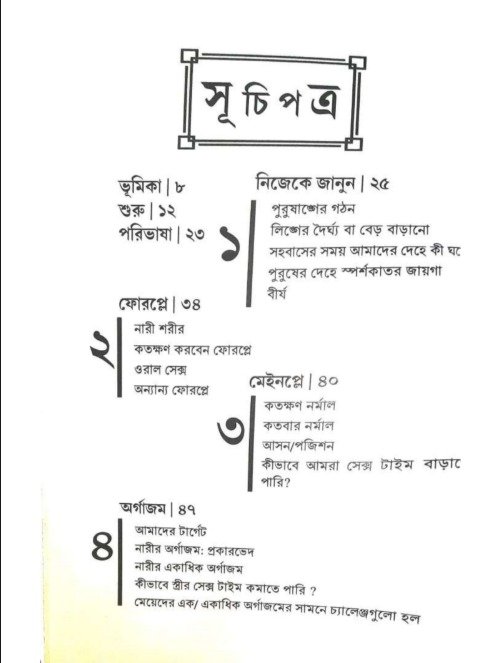 সূচিপত্র
ভূমিকা | ৮
শুরু | ১২
পরিভাষা | ২৩
১
নিজেকে জানুন | ২৫
পুরুষাঙ্গের গঠন
লিঙ্গের দৈর্ঘ্য বা বেড় বাড়ানো
সহবাসের সময় আমাদের দেহে কী ঘটে
পুরুষের দেহে স্পর্শকাতর জায়গা
বীর্য
২
ফোরপ্লে | ৩৪
নারী শরীর
কতক্ষণ করবেন ফোরপ্লে
ওরাল সেক্স
অন্যান্য ফোরপ্লে
৩
মেইনপ্লে | ৪০
কতক্ষণ নর্মাল
কতবার নর্মাল
আসন/পজিশন
কীভাবে আমরা সেক্স টাইম বাড়াতে
পারি?
৪
অর্গাজম | ৪৭
আমাদের টার্গেট
নারীর অর্গাজম: প্রকারভেদ
নারীর একাধিক অর্গাজম
কীভাবে স্ত্রীর সেক্স টাইম কমাতে পারি ?
মেয়েদের এক/ একাধিক অর্গাজমের সামনে চ্যালেঞ্জগুলো হল